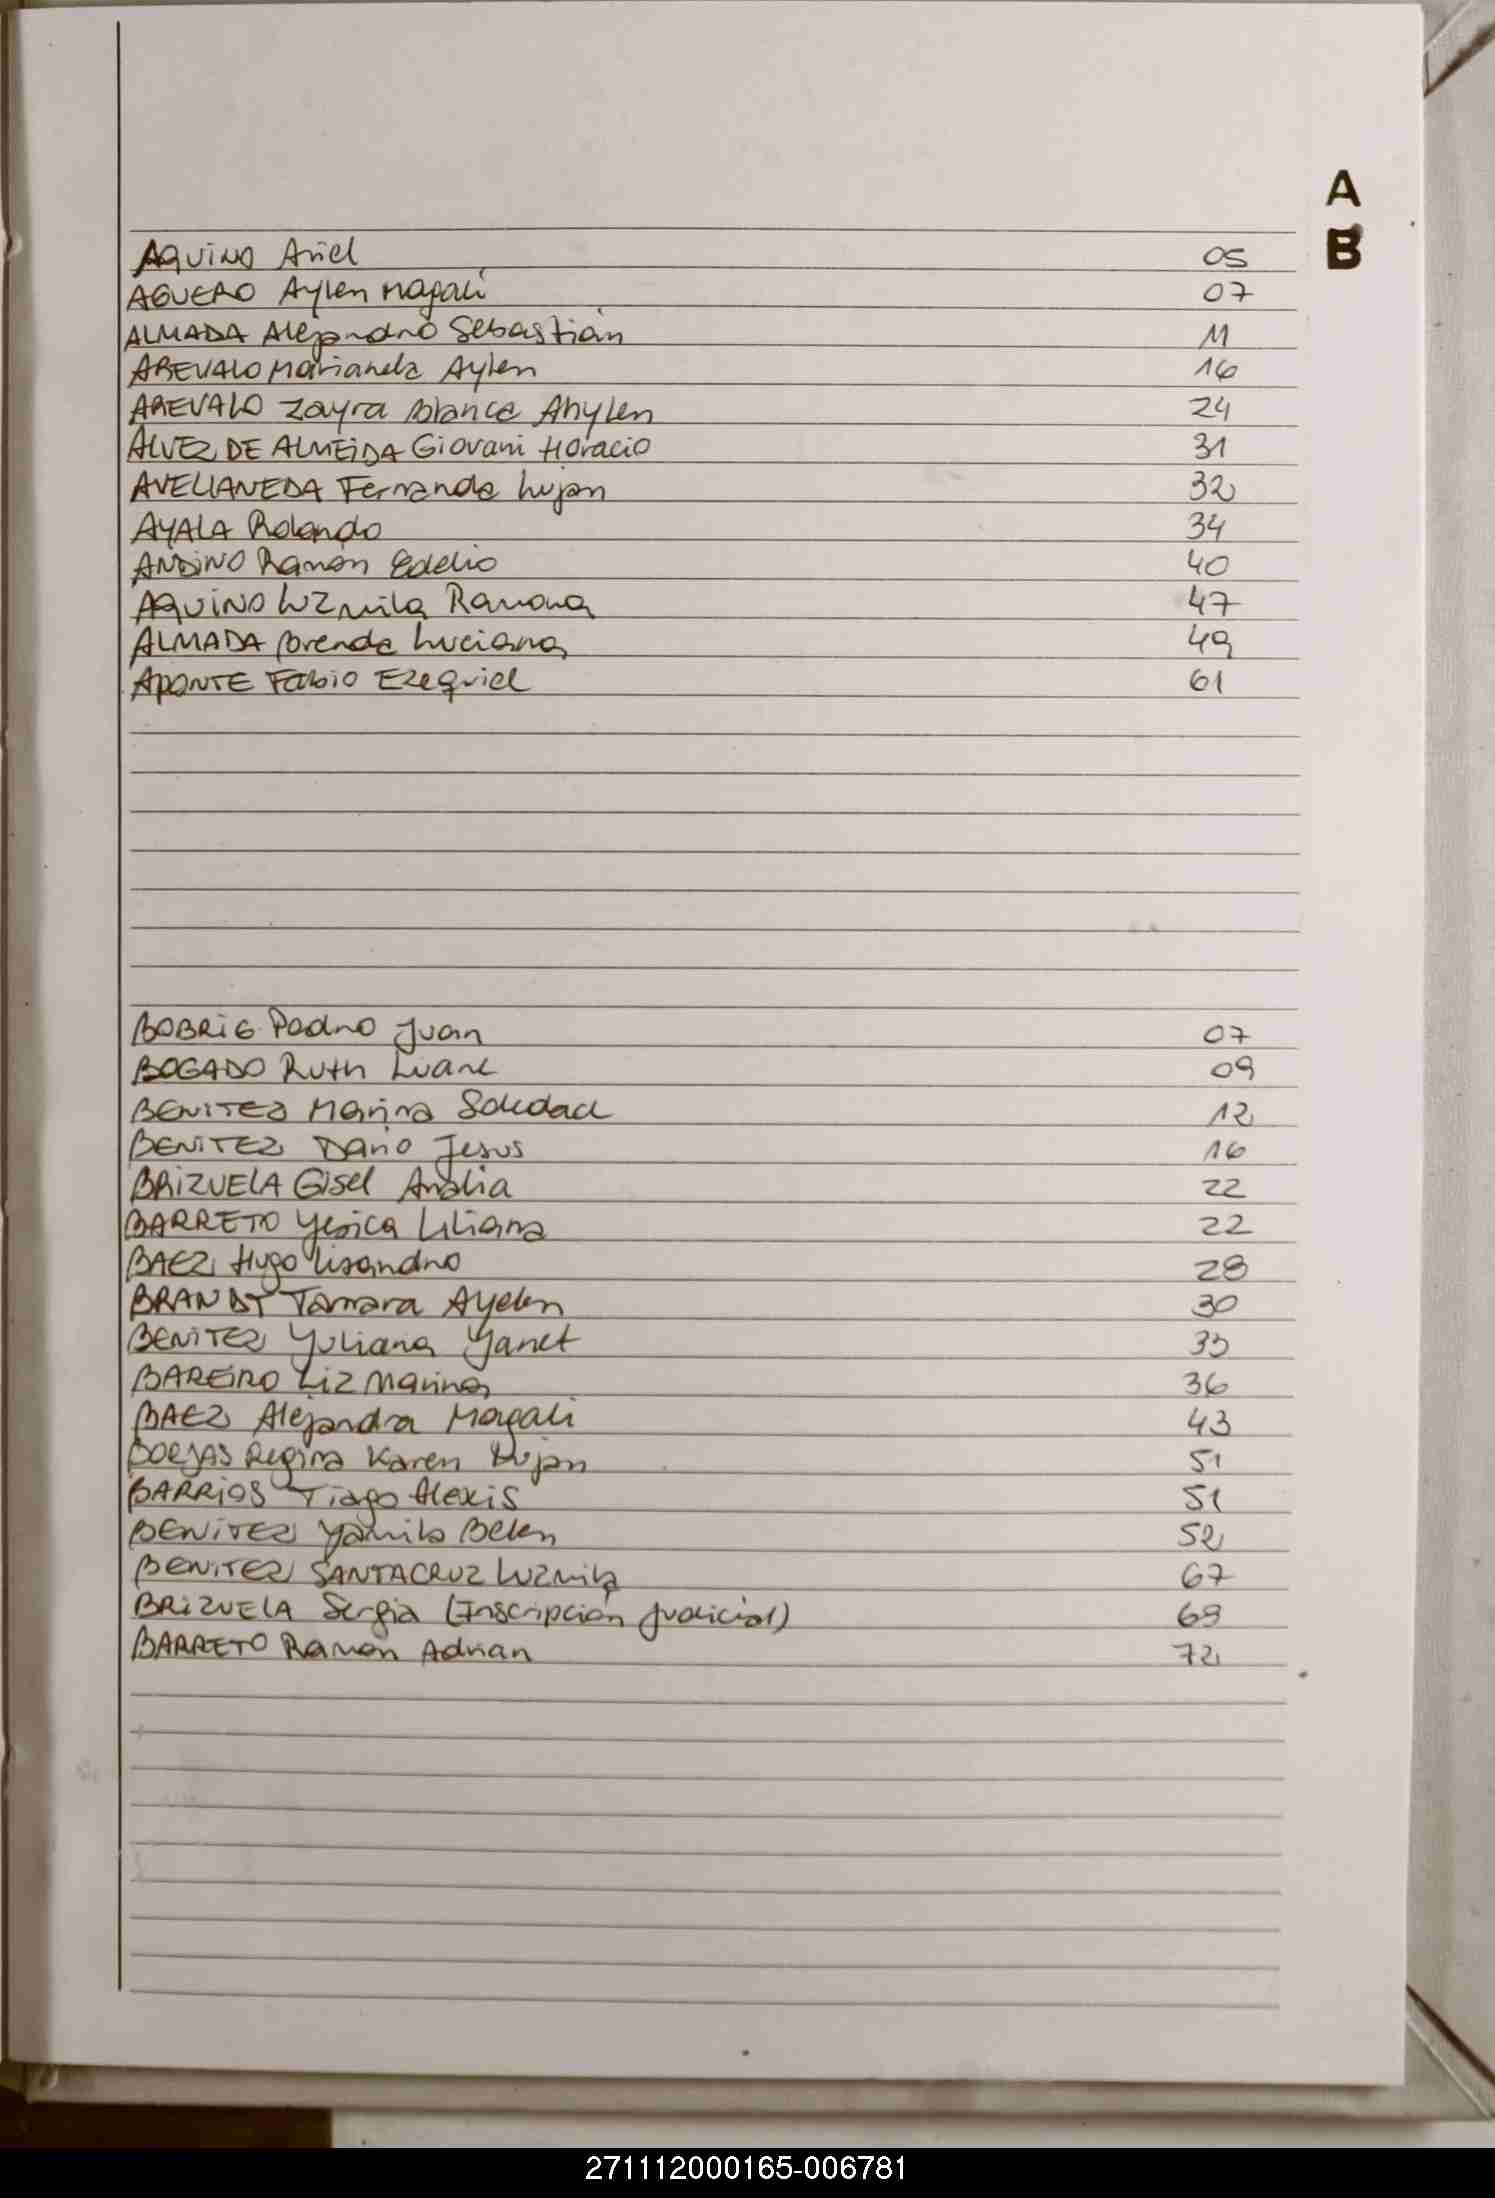 A
B
AQUINO Ariel 05
AGUERO Aylen Magali 07
ALMADA Alejandro Sebastián 11
AREVALO Marianela Aylen 16
AREVALO Zayra Blanca Ahylen 24
ALVEZ DE ALMEIDA Giovani Horacio 31
AVELLANEDA Fernanda Lujan 32
AYALA Rolando 34
ANDINO Ramón Edelio 40
AQUINO Luzmila Ramona 47
ALMADA Brenda Luciana 49
APONTE Fabio Ezequiel 61
BOBRIG Pedro Juan 07
BOGADO Ruth Luane 09
BENITEZ Marina Soledad 12
BENITEZ Dario Jesus 16
BRIZUELA Gisel Analia 22
BARRETO Yesica Liliana 22
BAEZ Hugo Lisandro 28
BRANDT Tamara Ayelen 30
BENITEZ Yuliana Yanet 33
BAREIRO Liz Marina 36
BAEZ Alejandra Magali 43
BORJAS Regina Karen Lujan 51
BARRIOS Tiago Alexis 51
BENITEZ Yamila Belen 52
BENITEZ SANTACRUZ Luzmila 67
BRIZUELA Sergia (Inscripción Judicial) 69
BARRETO Ramón Adrian 72
271112000165-006781